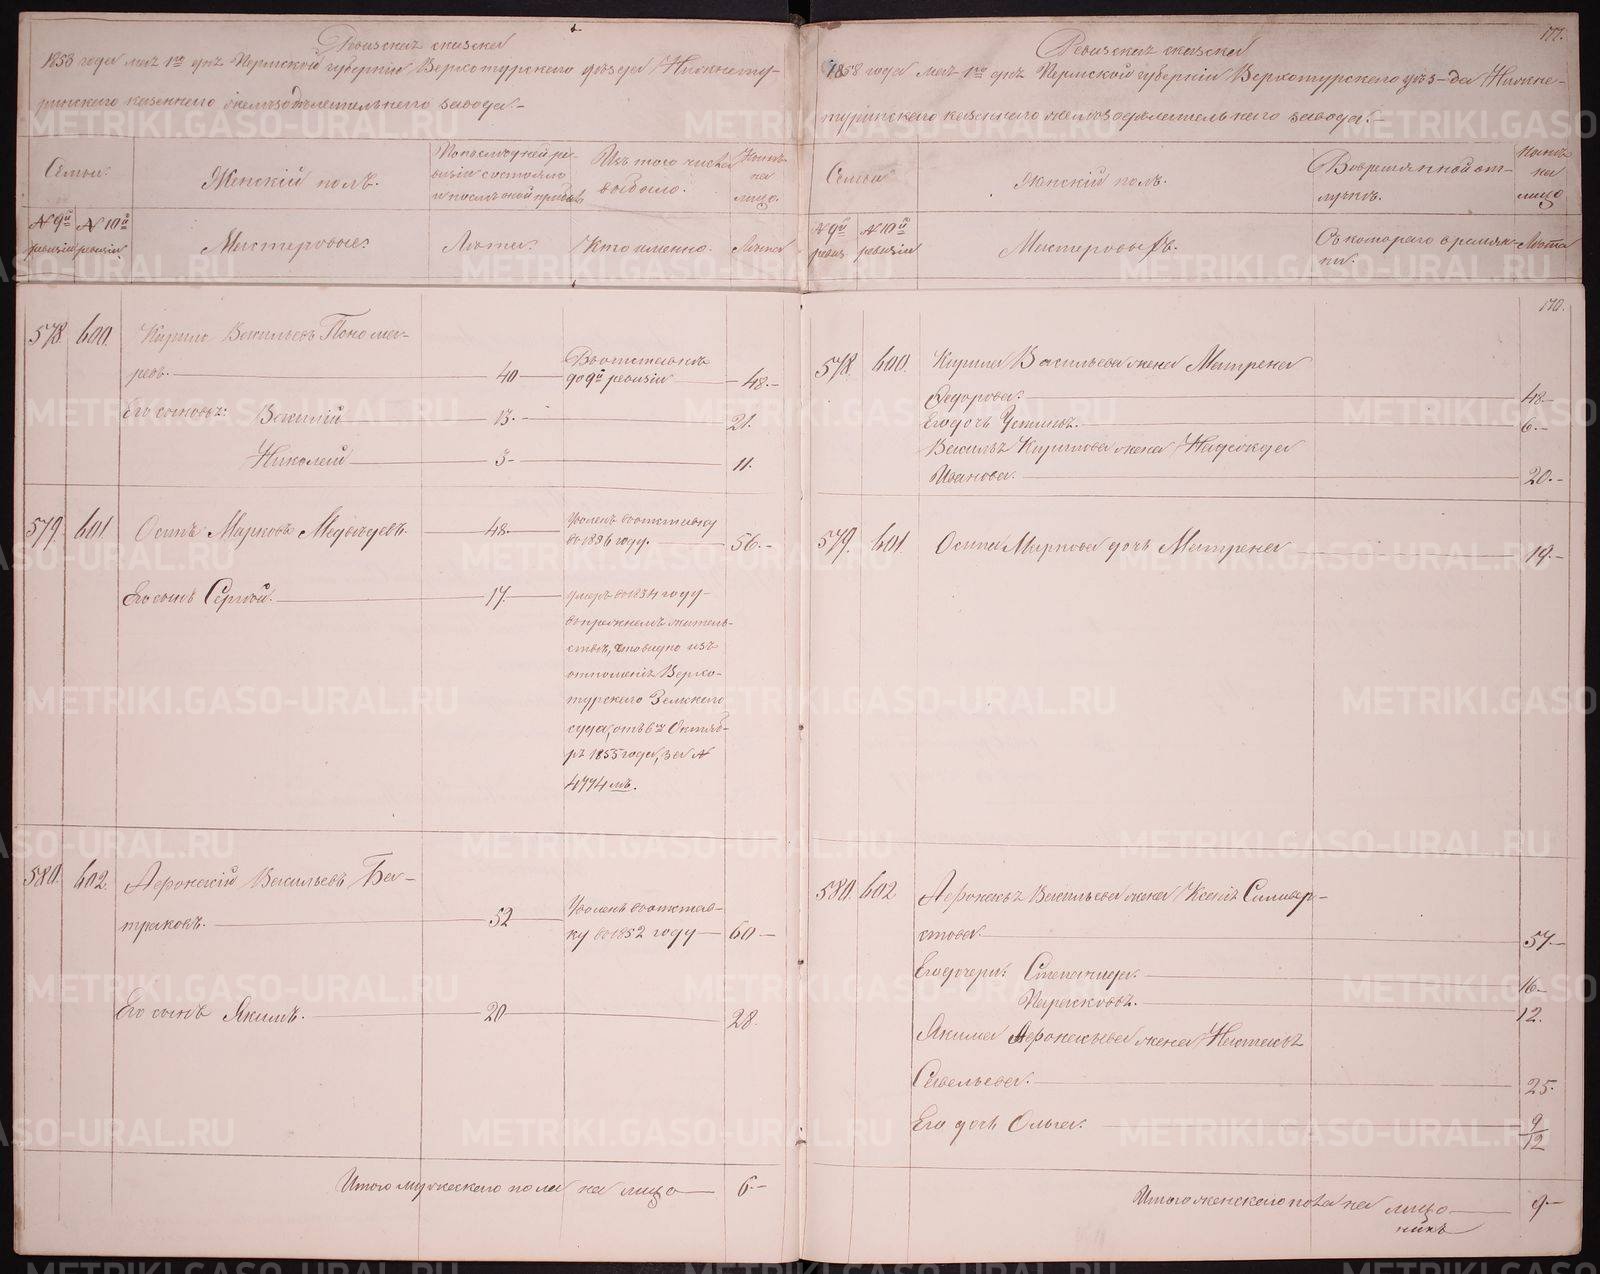 Ревизская сказка
1858 года мая 1го дня Пермской губернiи Верхотурского уезда Нижнету-
ринского казеннаго железоделательнаго завода.-
Семьи.
Женскiй полъ.
По последней ре-
визiи состояло
Изъ того числа
выбыло.
Ныне
на
лицо.
№ 9й
ревизiи
№ 10й
ревизiи
Мастеровые:
Лета.
Кто именно.
Лета
578. 600. Кирило Васильевъ Понома-
ревъ. 40 Въ отставке
до 9й ревизiи 48.-
Его сыновья: Василiй 13.- 21.
Николай 3- 11.
579. 601. Осипъ Марковъ Медведевъ. 48. Уволенъ въ отставку
въ 1856 году. 56.-
Его сынъ Сергей. 17. умеръ въ 1854 году
въ прежнемъ житель-
стве, что видно изъ
отношенiя Верхо-
турскаго Земскаго
суда, отъ 6го Октяб-
ря 1855 года, за №
4774мъ.
580. 602. Афонасiй Васильевъ Ба-
траковъ. 52 Уволенъ въ отстав-
ку въ 1852 году 60-
Его сынъ Якимъ. 20 28.
Итого мужескаго пола на лицо 6.-
177.
Ревизская сказка
1858 года мая 1го дня Пермской губернiи Верхотурскаго уез-да Нижне-
туринскаго казеннаго железоделательнаго завода.-
Семьи
Женскiй полъ.
Во временной от-
лучке.
Ныне
на
лицо
№ 9й
ревиз
№ 10й
ревизiи
Мастеровыхъ.
Съ котораго време-
ни.
Лета
170.
578. 600. Кирила Васильева жена Матрена
Федорова. 48-
Его дочь Устинья. 6.-
Василья Кирилова жена Надежда
Иванова. 20.-
579. 601. Осипа Маркова дочь Матрена 14.-
580. 602 Афонасья Васильева жена Ксенiя Сильвер-
стова. 57-
Его дочери: Степанида. 16-
Парасковья. 12.
Якима Афонасьева жена Настасья
Савельева. 25.
Его дочь Ольга. 9/12
Итого женскаго пола на лицо 9-